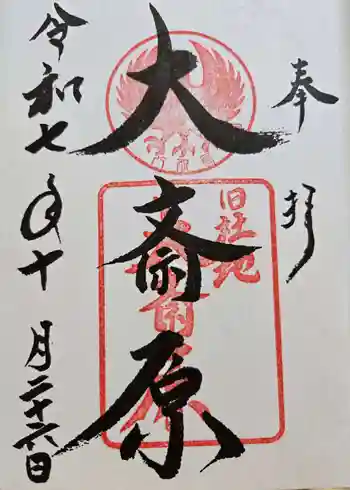 奉拝
大斎原
旧社地
大斎原
令和七年十月二十六日